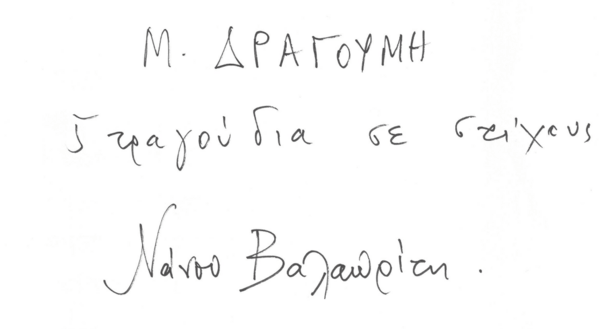 Μ. ΔΡΑΓΟΥΜΗ
5 τραγούδια σε στίχους
Νάνου Βαλαωρίτη.